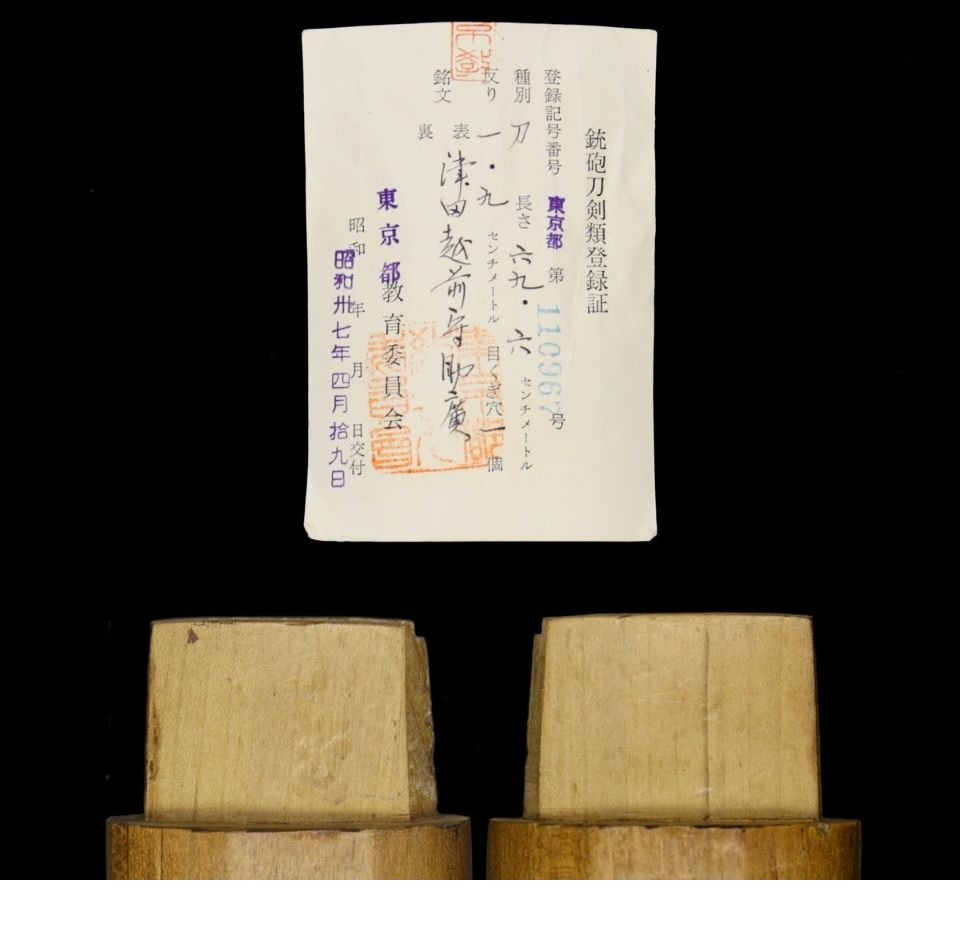 銃砲刀剣類登録証
登録記号番号 東京都 第 110967 号
種別 刀 長さ 六九・六 センチメートル
反り 一・九 センチメートル 目くぎ穴 一 個
銘文 表 津田越前守助廣
裏
東京都教育委員会
昭和 年 月 日交付
昭和卅七年四月拾九日